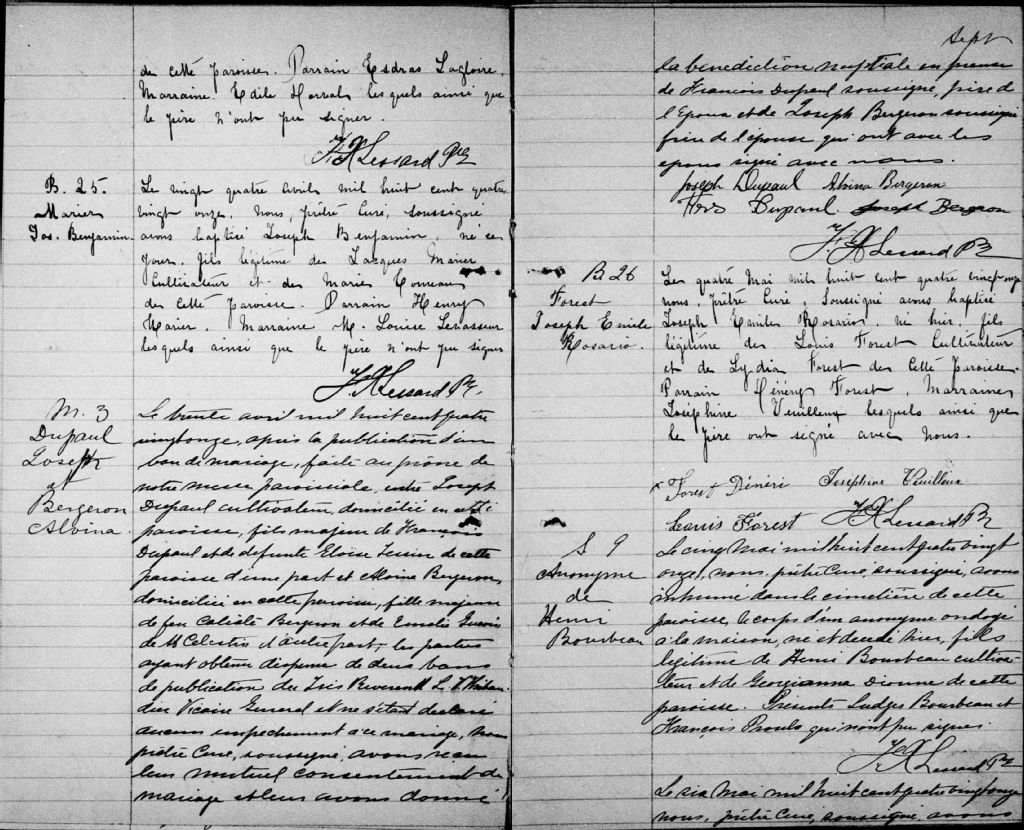 de cette paroisse. Parrain Esdras Lagloire.
Marraine. Edile Horval lesquels ainsi que
le père n'ont pu signer.
F. X Lessard Ptr
B. 25.
Marier
Jos. Benjamin.
Le vingt quatre avril mil huit cent quatre
vingt onze. Nous, prêtre Curé, soussigné
avons baptisé Joseph Benjamin, né ce
jour. fils légitime de Jacques Marier
Cultivateur et de Marie Comeau
de cette paroisse. Parrain Henry
Marier. Marraine M. Louise Levasseur
lesquels ainsi que le père n'ont pu signer
F. X Lessard Ptr.
M. 3
Dupaul
Joseph
et
Bergeron
Alvina.
Le trente avril mil huit cent quatre
vingt onze, après la publication d'un
ban de mariage, faite au prône de
notre messe paroissiale, entre Joseph
Dupaul cultivateur, domicilié en cette
paroisse, fils majeur de François
Dupaul et de defunte Eloise de cette
paroisse d'une part et Alvina Bergeron
domiciliée en cette paroisse, fille majeure
de feu Calixte Bergeron et de
de St Celestin d'autre part; les parties
ayant obtenu dispense de deux bans
de publication du Très Reverend L.
dieu Vicaire General et ne s'étant declaré
aucun empêchement à ce mariage, nous
prêtre Curé, soussigné, avons reçu
leur mutuel consentement de
mariage et leur avons donné
Sept
la benediction nuptiale en presence
de Francois Dupaul soussigné, frère de
l'Epoux et de Joseph Bergeron soussigné
frère de l'épouse qui ont avec les
epoux signé avec nous.
Joseph Dupaul Alvina Bergeron
Frs Dupaul. Joseph Bergeron
F. X Lessard Ptr
B 26
Forest
Joseph Emile
Rosario.
Le quatre Mai mil huit cent quatre vingt onze
nous, prêtre Curé, soussigné avons baptisé
Joseph Emile Rosario, né hier, fils
légitime de Louis Forest Cultivateur
et de Lydia Forest de cette paroisse.
Parrain Forest, Marraine
Joséphine Veuilleux lesquels ainsi que
le père ont signé avec Nous.
x Forest Joséphine Veuilleux
Louis Forest F. X Lessard Ptr
S 9
Anonyme
de
Henri
Bourbeau
Le cinq Mai mil huit cent quatre vingt
onze, nous, prêtre Curé, soussigné, avons
inhumé dans le cimetière de cette
paroisse, le corps d'un anonyme ondoyé
à la maison, né et decedé hier, fils
legitime de Henri Bourbeau cultiva-
teur et de Georgianna Dionne de cette
paroisse. Présents Judges Bourbeau et
François Proulx qui n'ont pu signer.
F. X Lessard Ptr
Le six Mai mil huit cent quatre vingt onze
nous, prêtre Curé, soussigné, avons